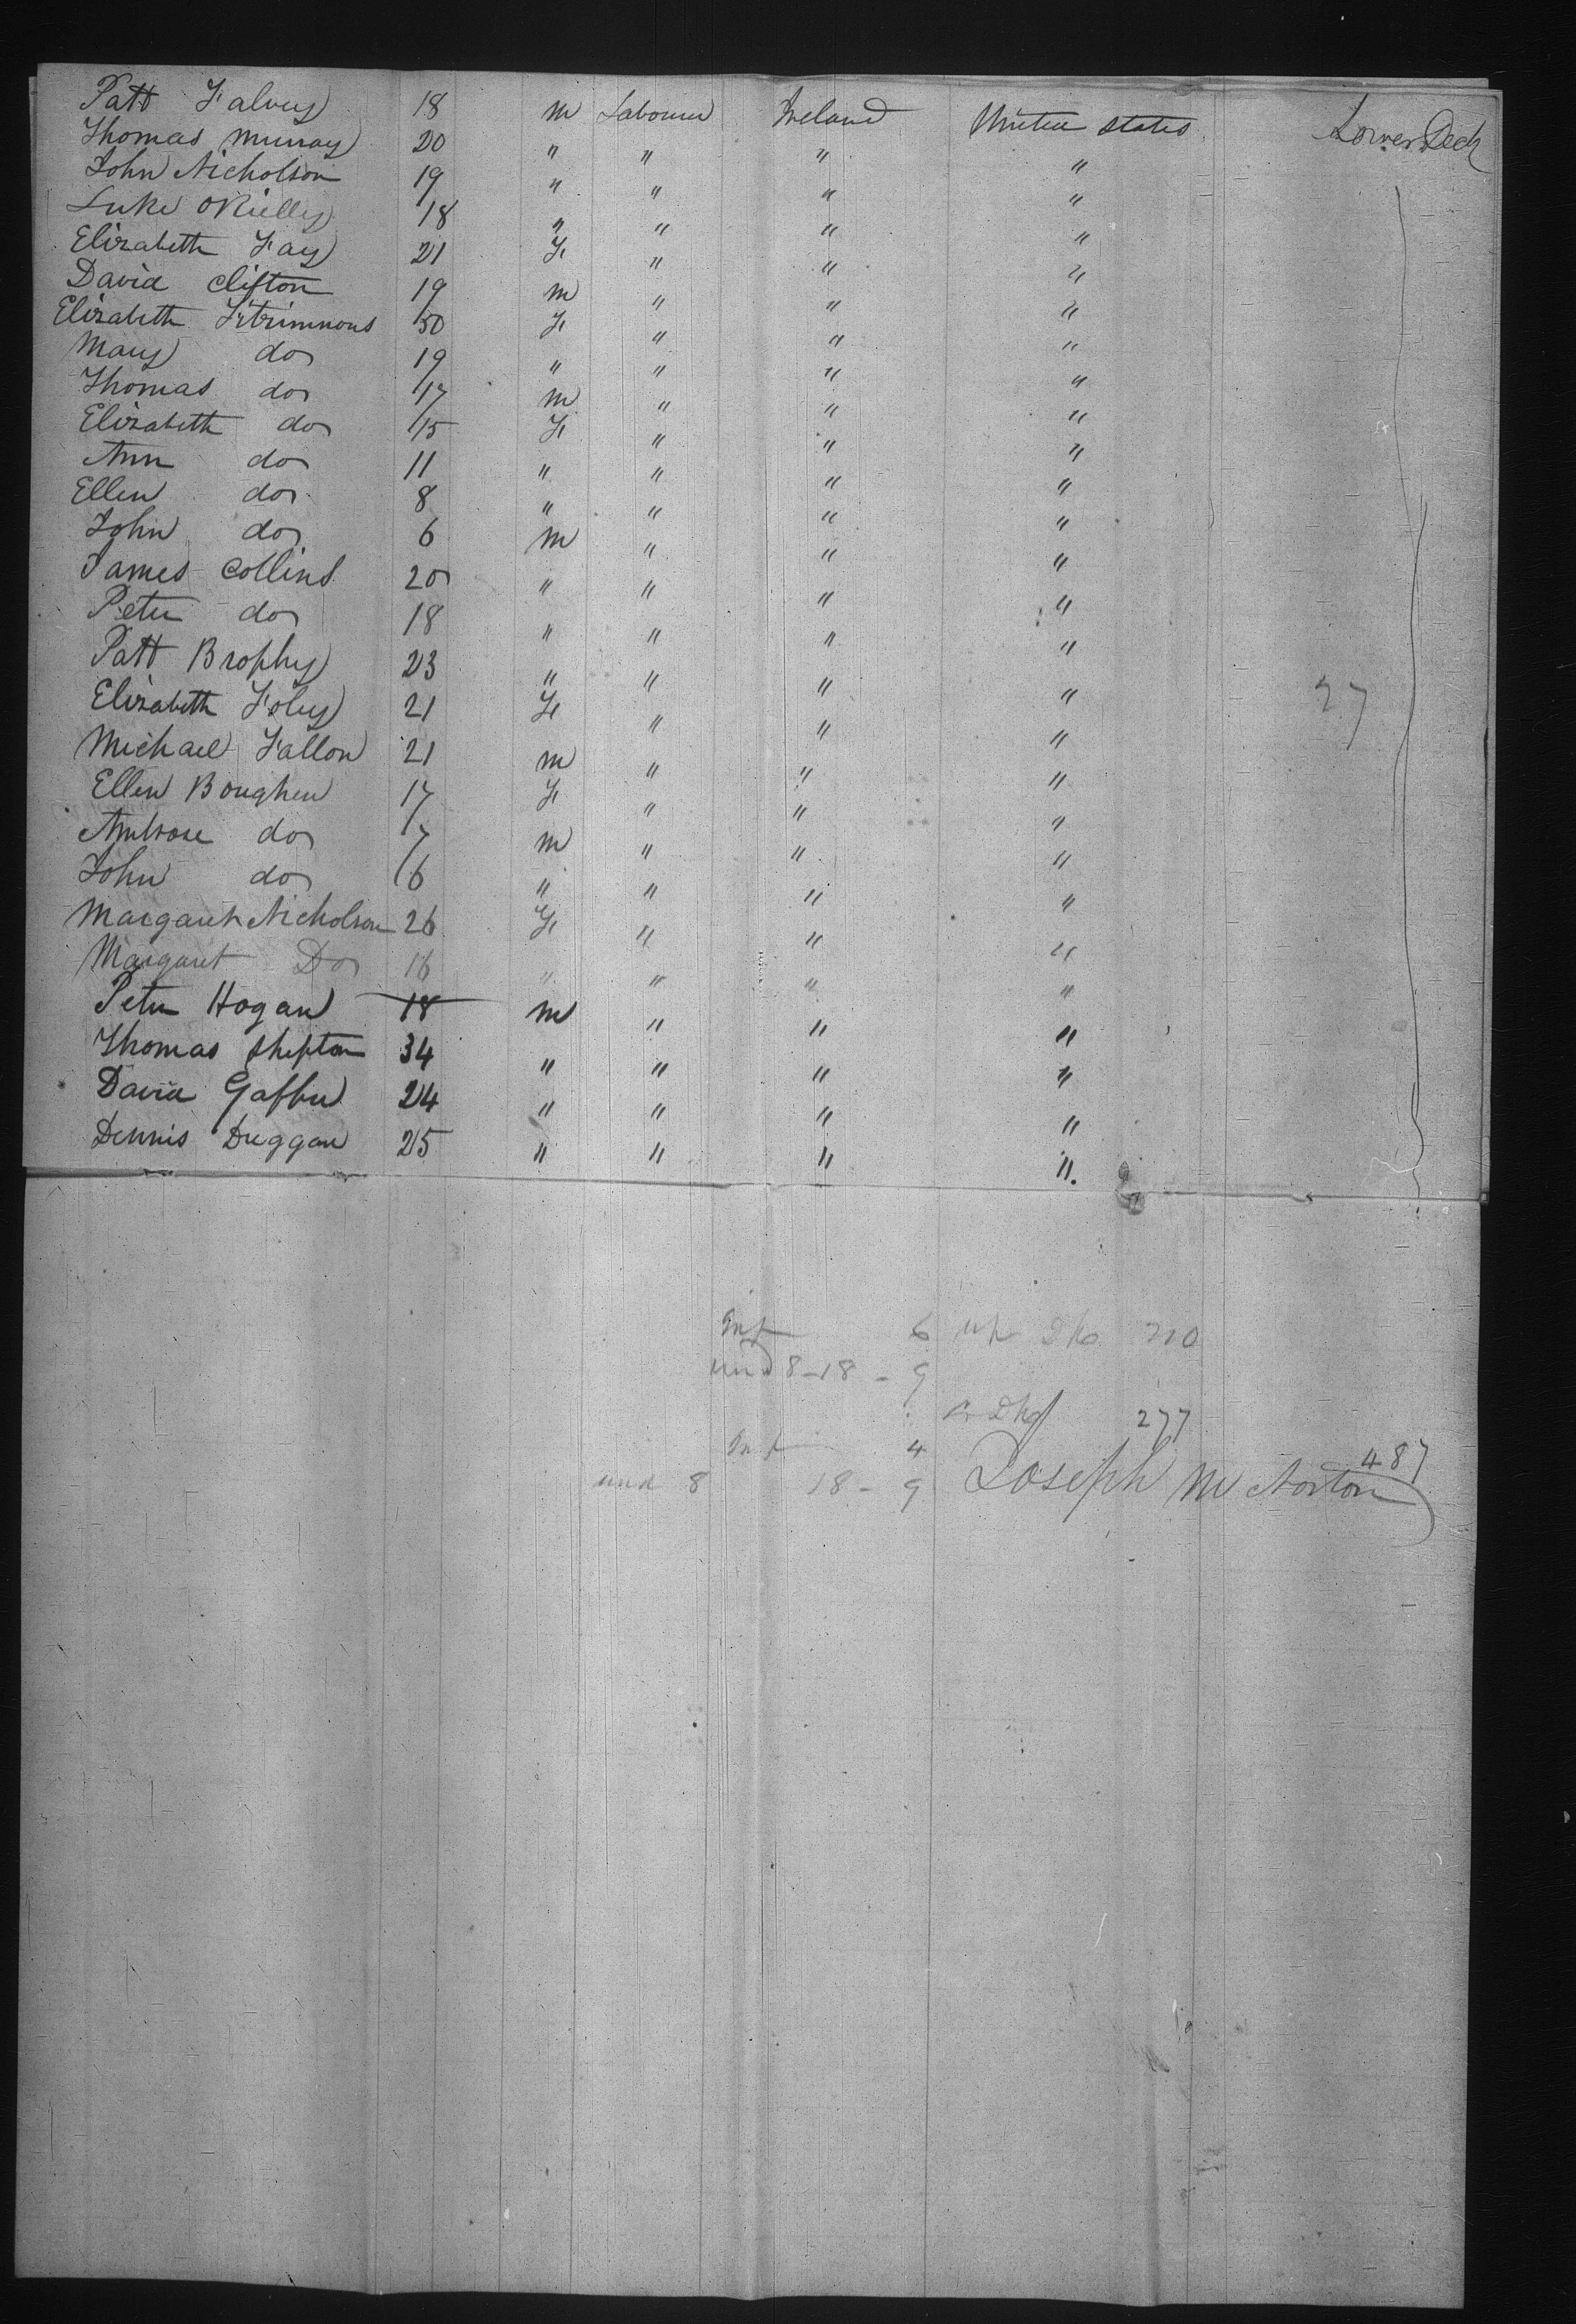 Patt Falvey 18 m Labourer Ireland United States Lower Deck
Thomas Murray 20 " " " "
John Nicholson 19 " " " "
Luke OReilley 18 " " " "
Elizabeth Fay 21 F " " "
David Clifton 19 m " " "
Elizabeth Fitzimmons 50 F " " "
Mary do 19 " " " "
Thomas do 17 m " " "
Elizabeth do 15 F " " "
Ann do 11 " " " "
Ellen do 8 " " " "
John do 6 m " " "
James Collins 20 " " " "
Peter do 18 " " " "
Patt Brophy 23 " " " "
Elizabeth Foley 21 F " " " 27
Michael Fallon 21 m " " "
Ellen Boughen 17 F " " "
Ambrose do 7 m " " "
John do 6 " " " "
Margaret Nicholson 26 F " " "
Margaret Do 16 " " " "
Peter Hogan 18 m " " "
Thomas Shepton 34 " " " "
David Gaffen 24 " " " "
Dennis Duggan 25 " " " "
Inf 6 up Dk 210
und 8-18 - 9
Dk 277
Inf 4 487
und 8 18 - 9 Joseph M Norton